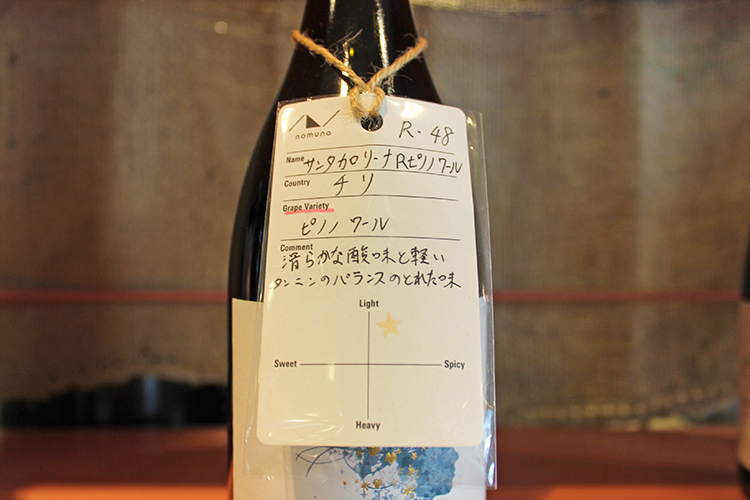 nomuno
R-48
Name サンタカロリーナRピノノワール
Country チリ
Grape Variety
ピノノワール
Comment
滑らかな酸味と軽い
タンニンのバランスのとれた味
Light
Sweet Spicy
Heavy